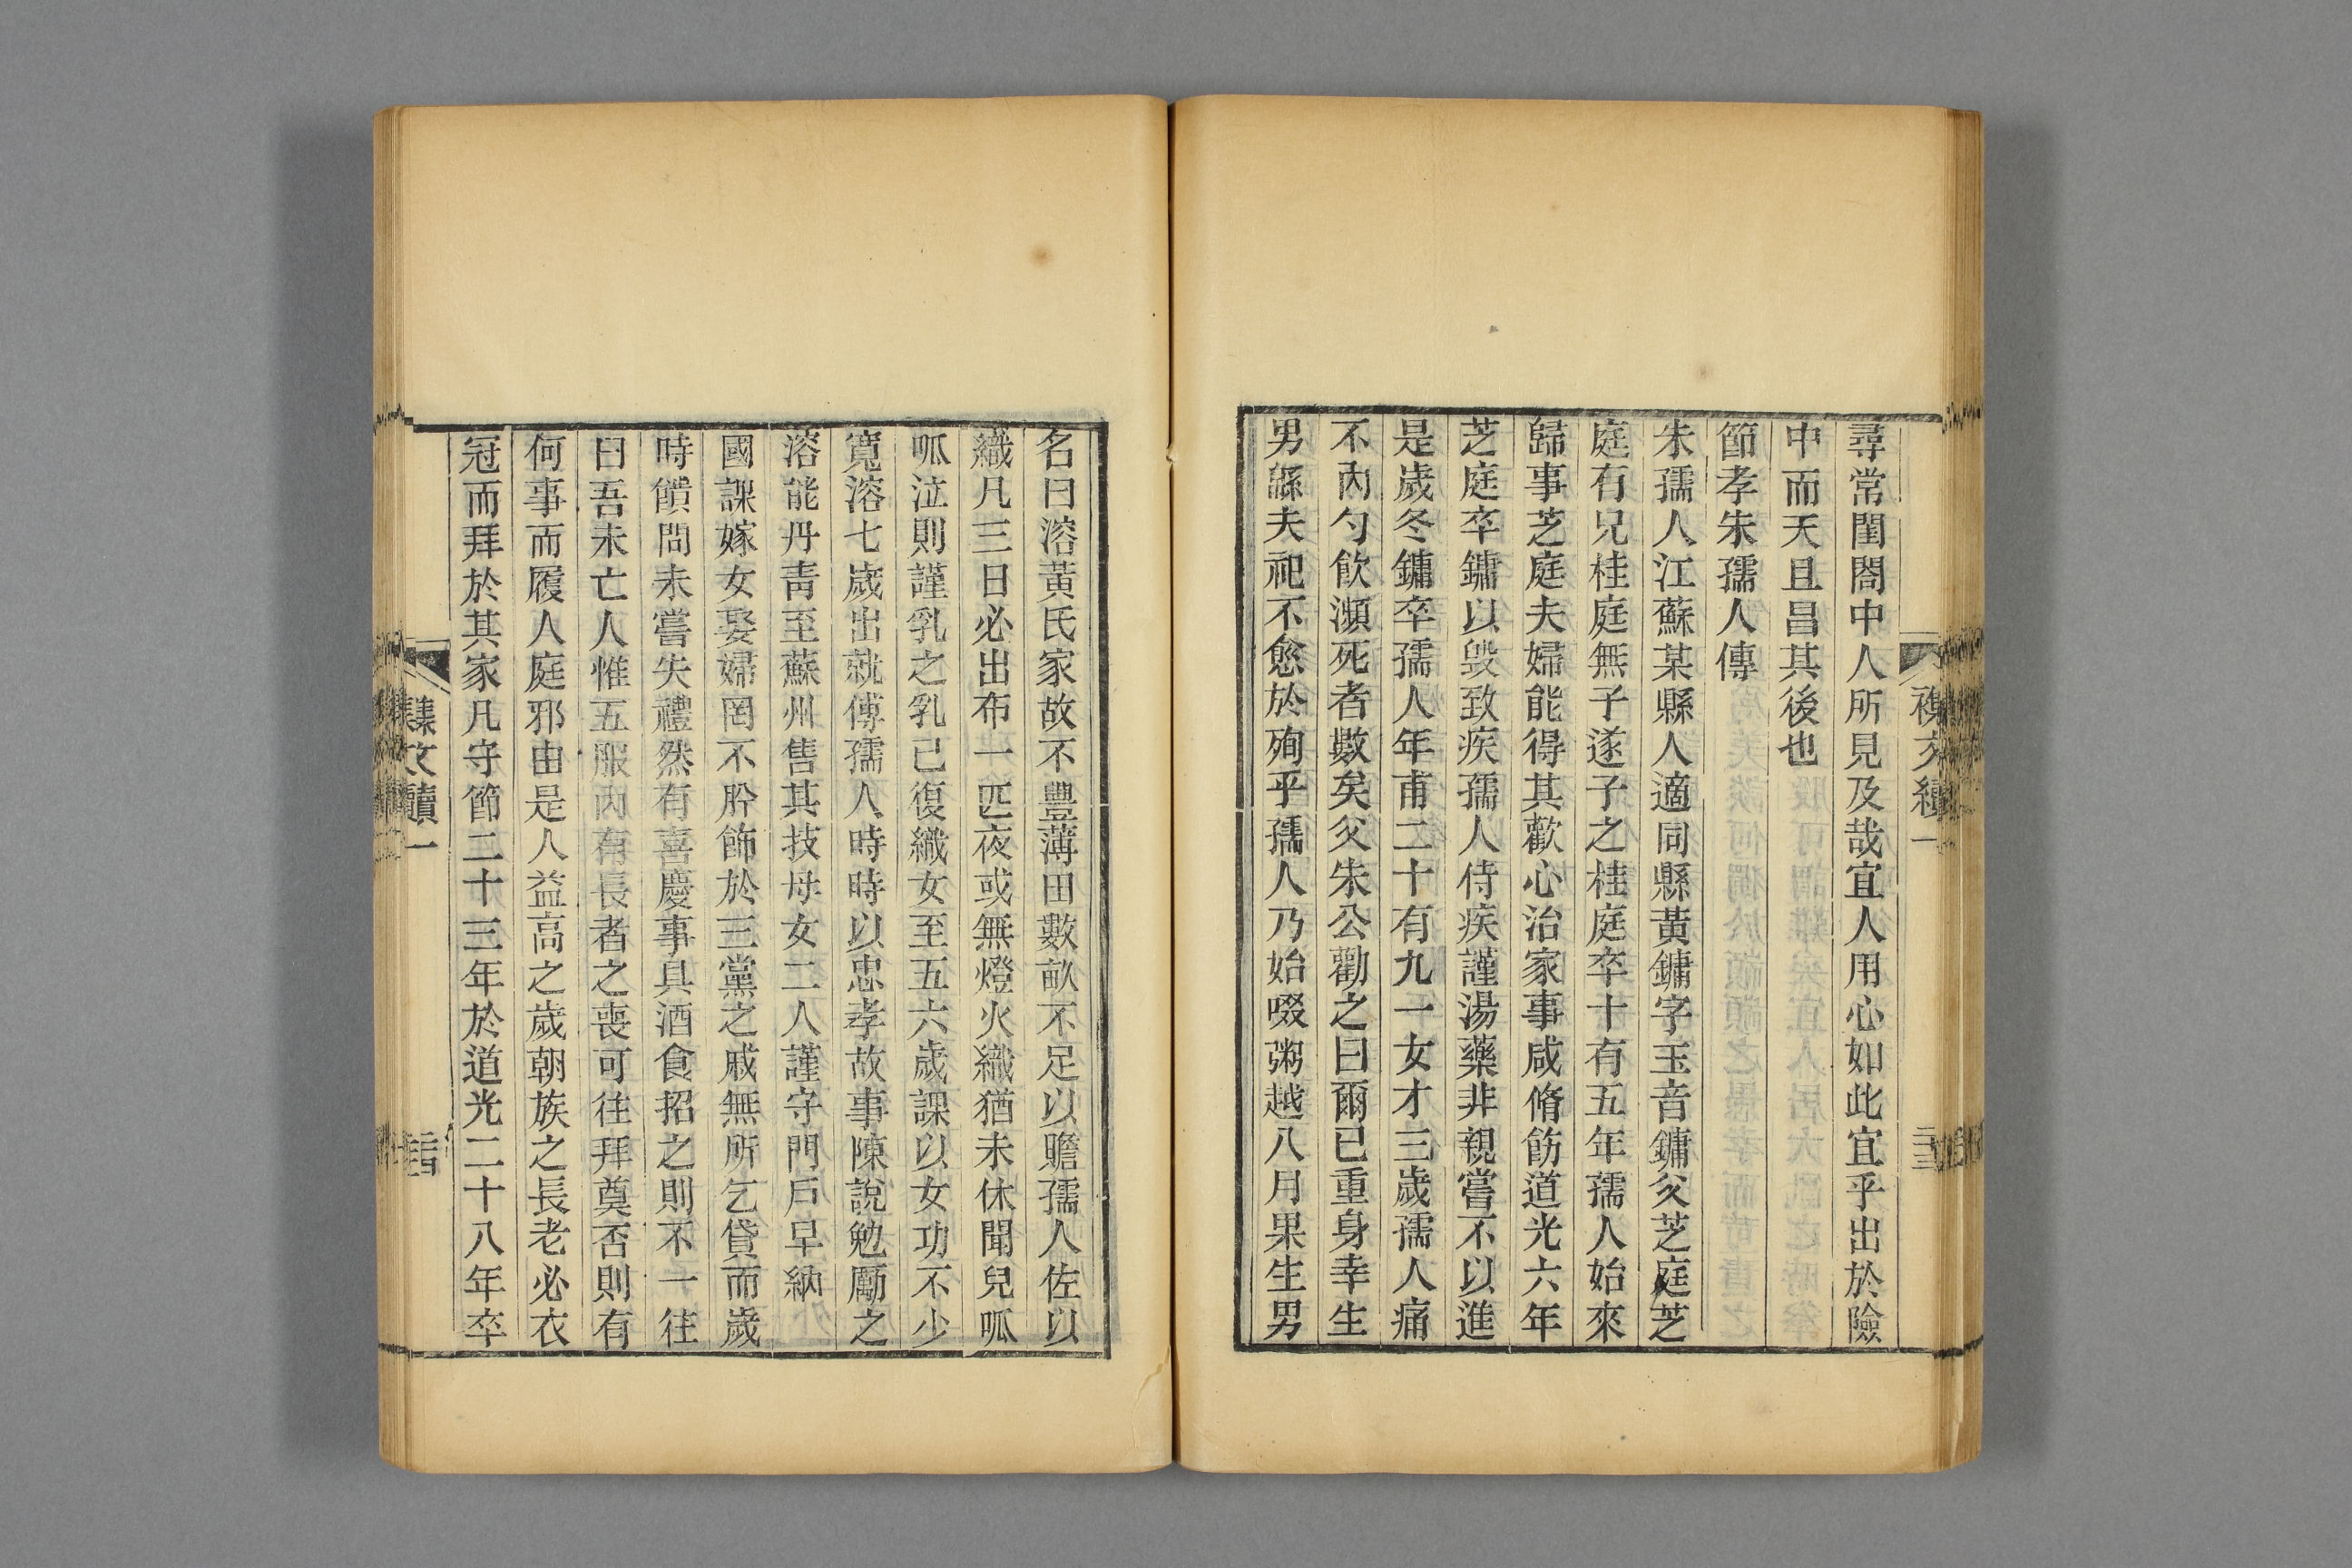 尋常閨閤中人所見及哉宜人用心如此宜乎出於險
中而天且昌其後也
節孝朱孺人傳
朱孺人江蘇某縣人適同縣黃鏞字玉音鏞父芝庭芝
庭有兄桂庭無子遂子之桂庭卒十有五年孺人始來
歸事芝庭夫婦能得其歡心治家事咸脩飭道光六年
芝庭卒鏞以毀致疾孺人侍疾謹湯藥非親嘗不以進
是歲冬鏞卒孺人年甫二十有九一女才三歲孺人痛
不內勺飲瀕死者數矣父朱公勸之曰爾已重身幸生
男繇夫祀不愈於殉乎孺人乃始啜粥越八月果生男
名曰溶黃氏家故不豐薄田數畝不足以贍孺人佐以
織凡三日必出布一匹夜或無燈火織猶未休聞兒呱
呱泣則謹乳之乳已復織女至五六歲課以女功不少
寬溶七歲出就傅孺人時時以忠孝故事陳說勉勵之
溶能丹青至蘇州售其技母女二人謹守門戶早納
國課嫁女娶婦罔不肸飾於三黨之戚無所乞貸而歲
時饋問未嘗失禮然有喜慶事具酒食招之則不一往
曰吾未亡人惟五服內有長者之喪可往拜奠否則有
何事而履人庭邪由是人益高之歲朝族之長老必衣
冠而拜於其家凡守節二十三年於道光二十八年卒